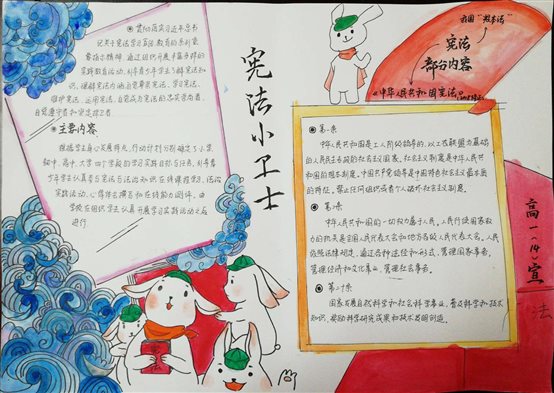 贯彻落实习近平总书
记关于宪法学习宣传教育的系列重
要指示精神，通过组织开展丰富多彩的
实践教育活动，引导青少年学生了解宪法知
识，理解宪法内涵，自觉尊崇宪法、学习宪法、
维护宪法、运用宪法，自觉成为宪法的忠实崇尚者、
自觉遵守者和坚定捍卫者。
主要内容
根据学生身心发展特点，行动计划分别确定了小学、
初中、高中、大学四个学段的学习实践目标与任务，引导青
少年学生认真参与宪法与法治知识在线课程学习、法治
实践活动、心得体会撰写和在线能力测评，由
学校在组织学生认真开展学习实践活动之后
进行
宪法小卫士
我国"根本法"
宪法
部分内容
《中华人民共和国宪法》
第一条
中华人民共和国是工人阶级领导的、以工农联盟为基础
的人民民主专政的社会主义国家。社会主义制度是中华人民共
和国的根本制度。中国共产党领导是中国特色社会主义最本质
的特征。禁止任何组织或者个人破坏社会主义制度。
第二条
中华人民共和国的一切权力属于人民。人民行使国家权
力的机关是全国人民代表大会和地方各级人民代表大会。人民
依照法律规定，通过各种途径和形式，管理国家事务，
管理经济和文化事业，管理社会事务。
第二十条
国家发展自然科学和社会科学事业，普及科学和技术
知识，奖励科学研究成果和技术发明创造。
高一（14）宣
法